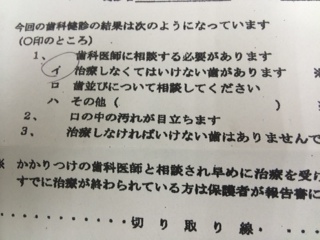 今回の歯科健診の結果は次のようになっています
(○印のところ)
1、 歯科医師に相談する必要があります
イ 治療しなくてはいけない歯があります ※
ロ 歯並びについて相談してください
ハ その他(
2、 口の中の汚れが目立ちます
3、 治療しなければいけない歯はありませんで
※ かかりつけの歯科医師と相談され早めに治療を受け
すでに治療が終わられている方は保護者が報告書に
・・・・・・・・・切り取り線・・・・